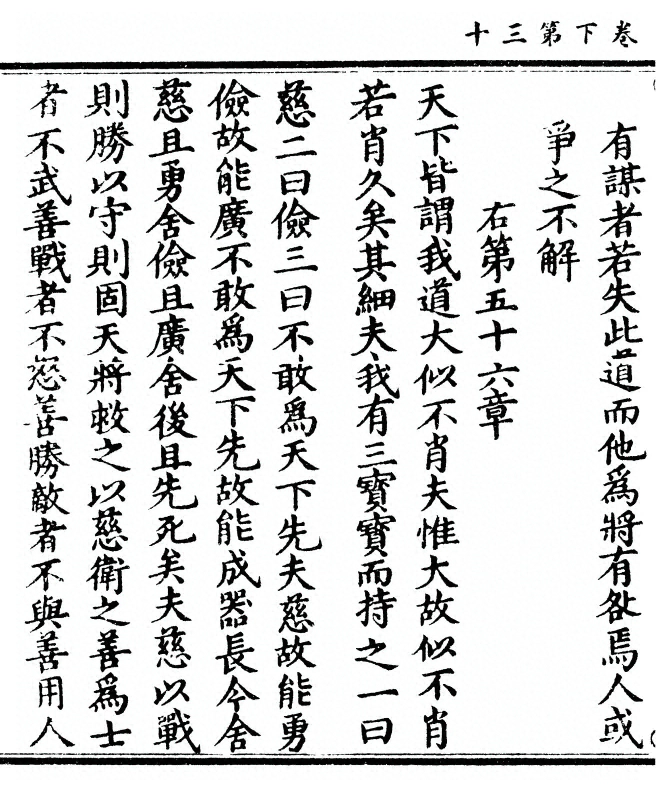 卷下第三十
有謀者若失此道而他爲將有咎焉人或
爭之不解
右第五十六章
天下皆謂我道大似不肖夫惟大故似不肖
若肖久矣其細夫我有三寶寶而持之一曰
慈二曰儉三曰不敢爲天下先夫慈故能勇
儉故能廣不敢爲天下先故能成器長今舍
慈且勇舍儉且廣舍後且先死矣夫慈以戰
則勝以守則固天將救之以慈衛之善爲士
者不武善戰者不怒善勝敵者不與善用人